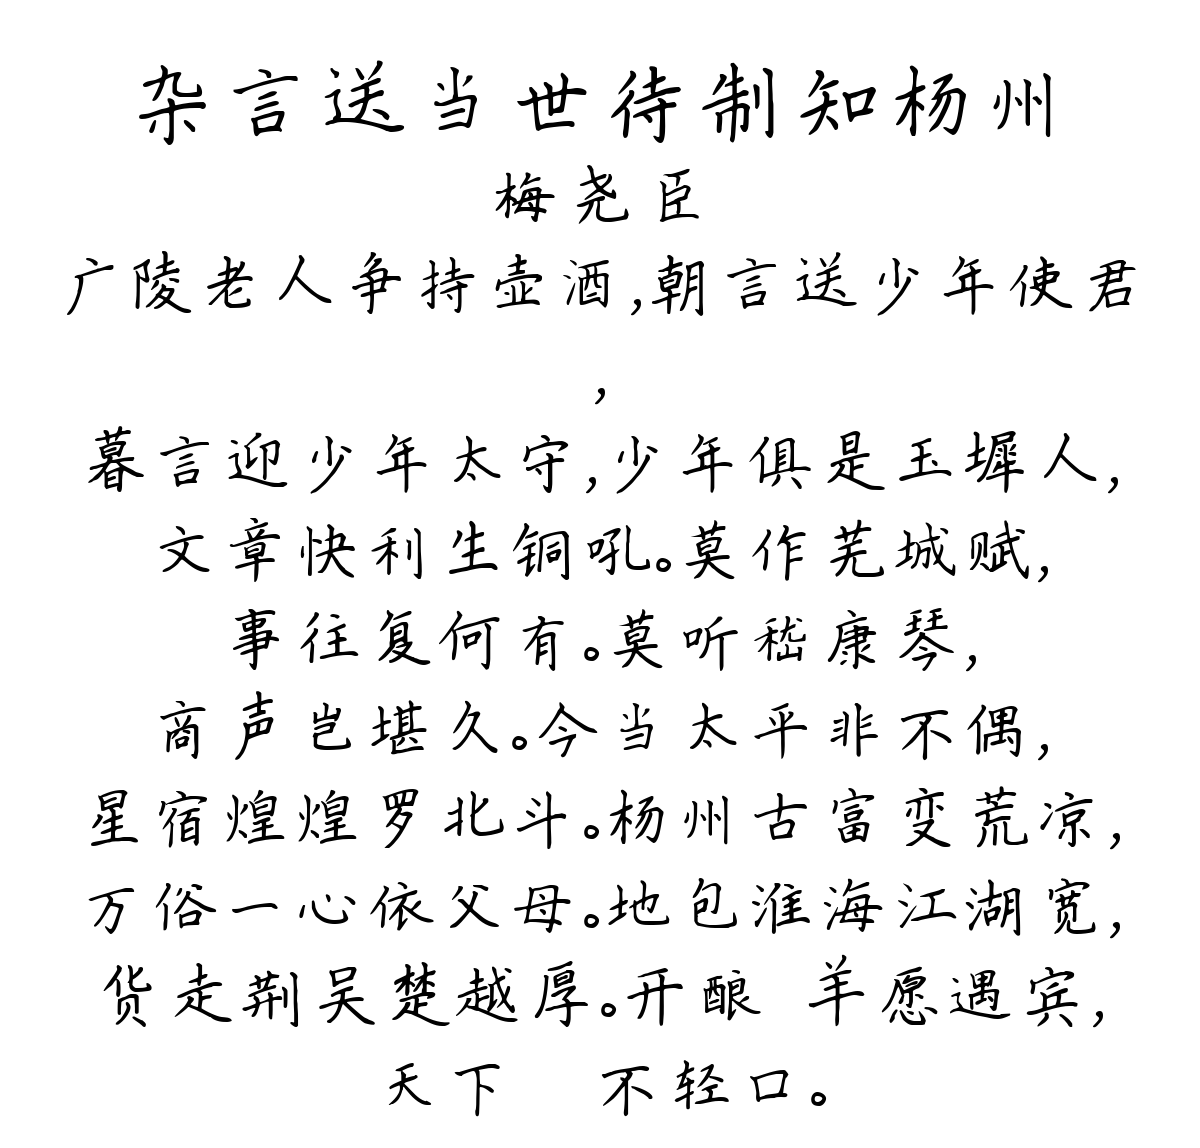 杂言送当世待制知杨州
梅尧臣
广陵老人争持壶酒,朝言送少年使君
,
暮言迎少年太守,少年俱是玉墀人,
文章快利生铜吼。莫作芜城赋,
事往复何有。莫听嵇康琴,
商声岂堪久。今当太平非不偶,
星宿煌煌罗北斗。杨州古富变荒凉,
万俗一心依父母。地包淮海江湖宽,
货走荆吴楚越厚。开酿 羊愿遇宾,
天下 不轻口。